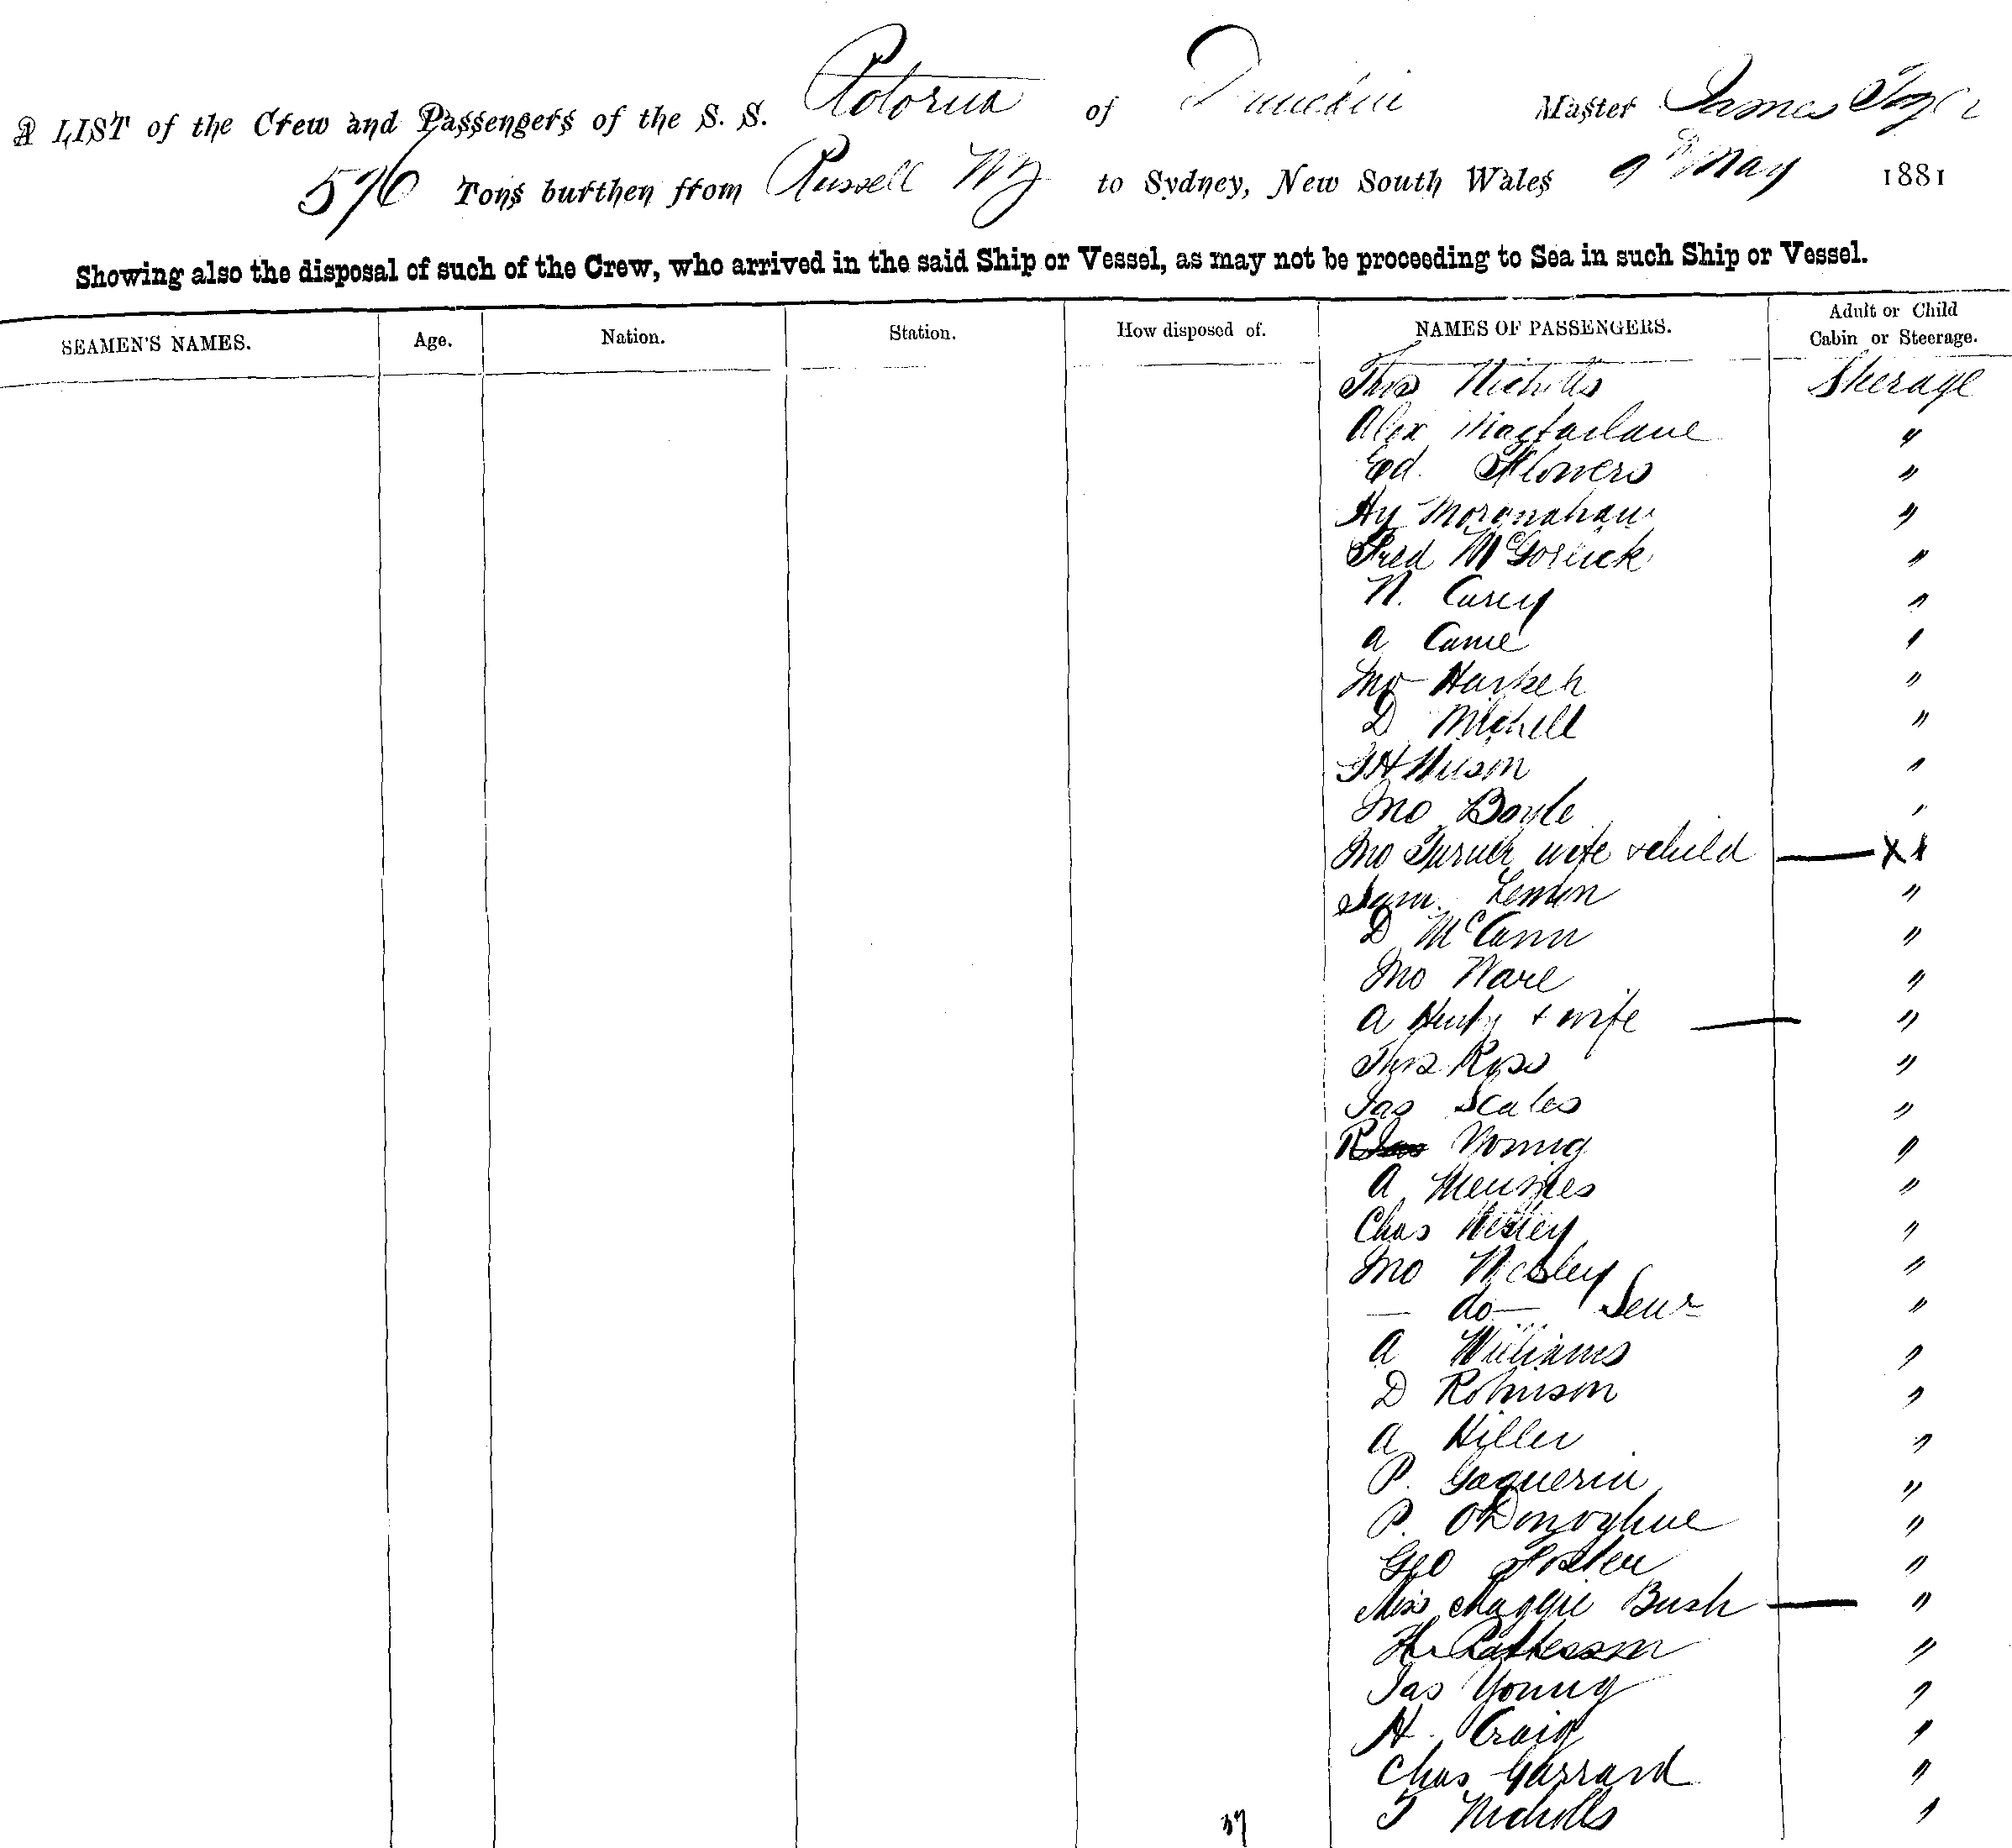 A LIST of the Crew and Passengers of the S. S. Rotorua of Dunedin Master James
576 Tons burthen from Russell NZ to Sydney, New South Wales 9th May 1881
Showing also the disposal of such of the Crew, who arrived in the said Ship or Vessel, as may not be proceeding to Sea in such Ship or Vessel.
SEAMEN'S NAMES. Age. Nation. Station. How disposed of. NAMES OF PASSENGERS. Adult or Child Cabin or Steerage.
Thos Nicholls Steerage
Alex Macfarlane "
Ed. Flowers "
Hy "
Fred "
N. Carey "
A Came "
Jno "
D Michell "
Wilson "
Jno Boyle "
Jno Turner wife & child "
Sam. Lemon "
D McCann "
Jno Ware "
A & wife "
Thos Ross "
Jas Scales "
R Young "
A Menzies "
Chas Wesley "
Jno Wesley "
— do — Senr "
A Williams "
D Robinson "
A Hiller "
P. "
P. O'Donoghue "
Geo Foster "
Miss Maggie Bush "
H. Patterson "
Jas Young "
H. Craig "
Chas Garrard "
T Nicholls "
37